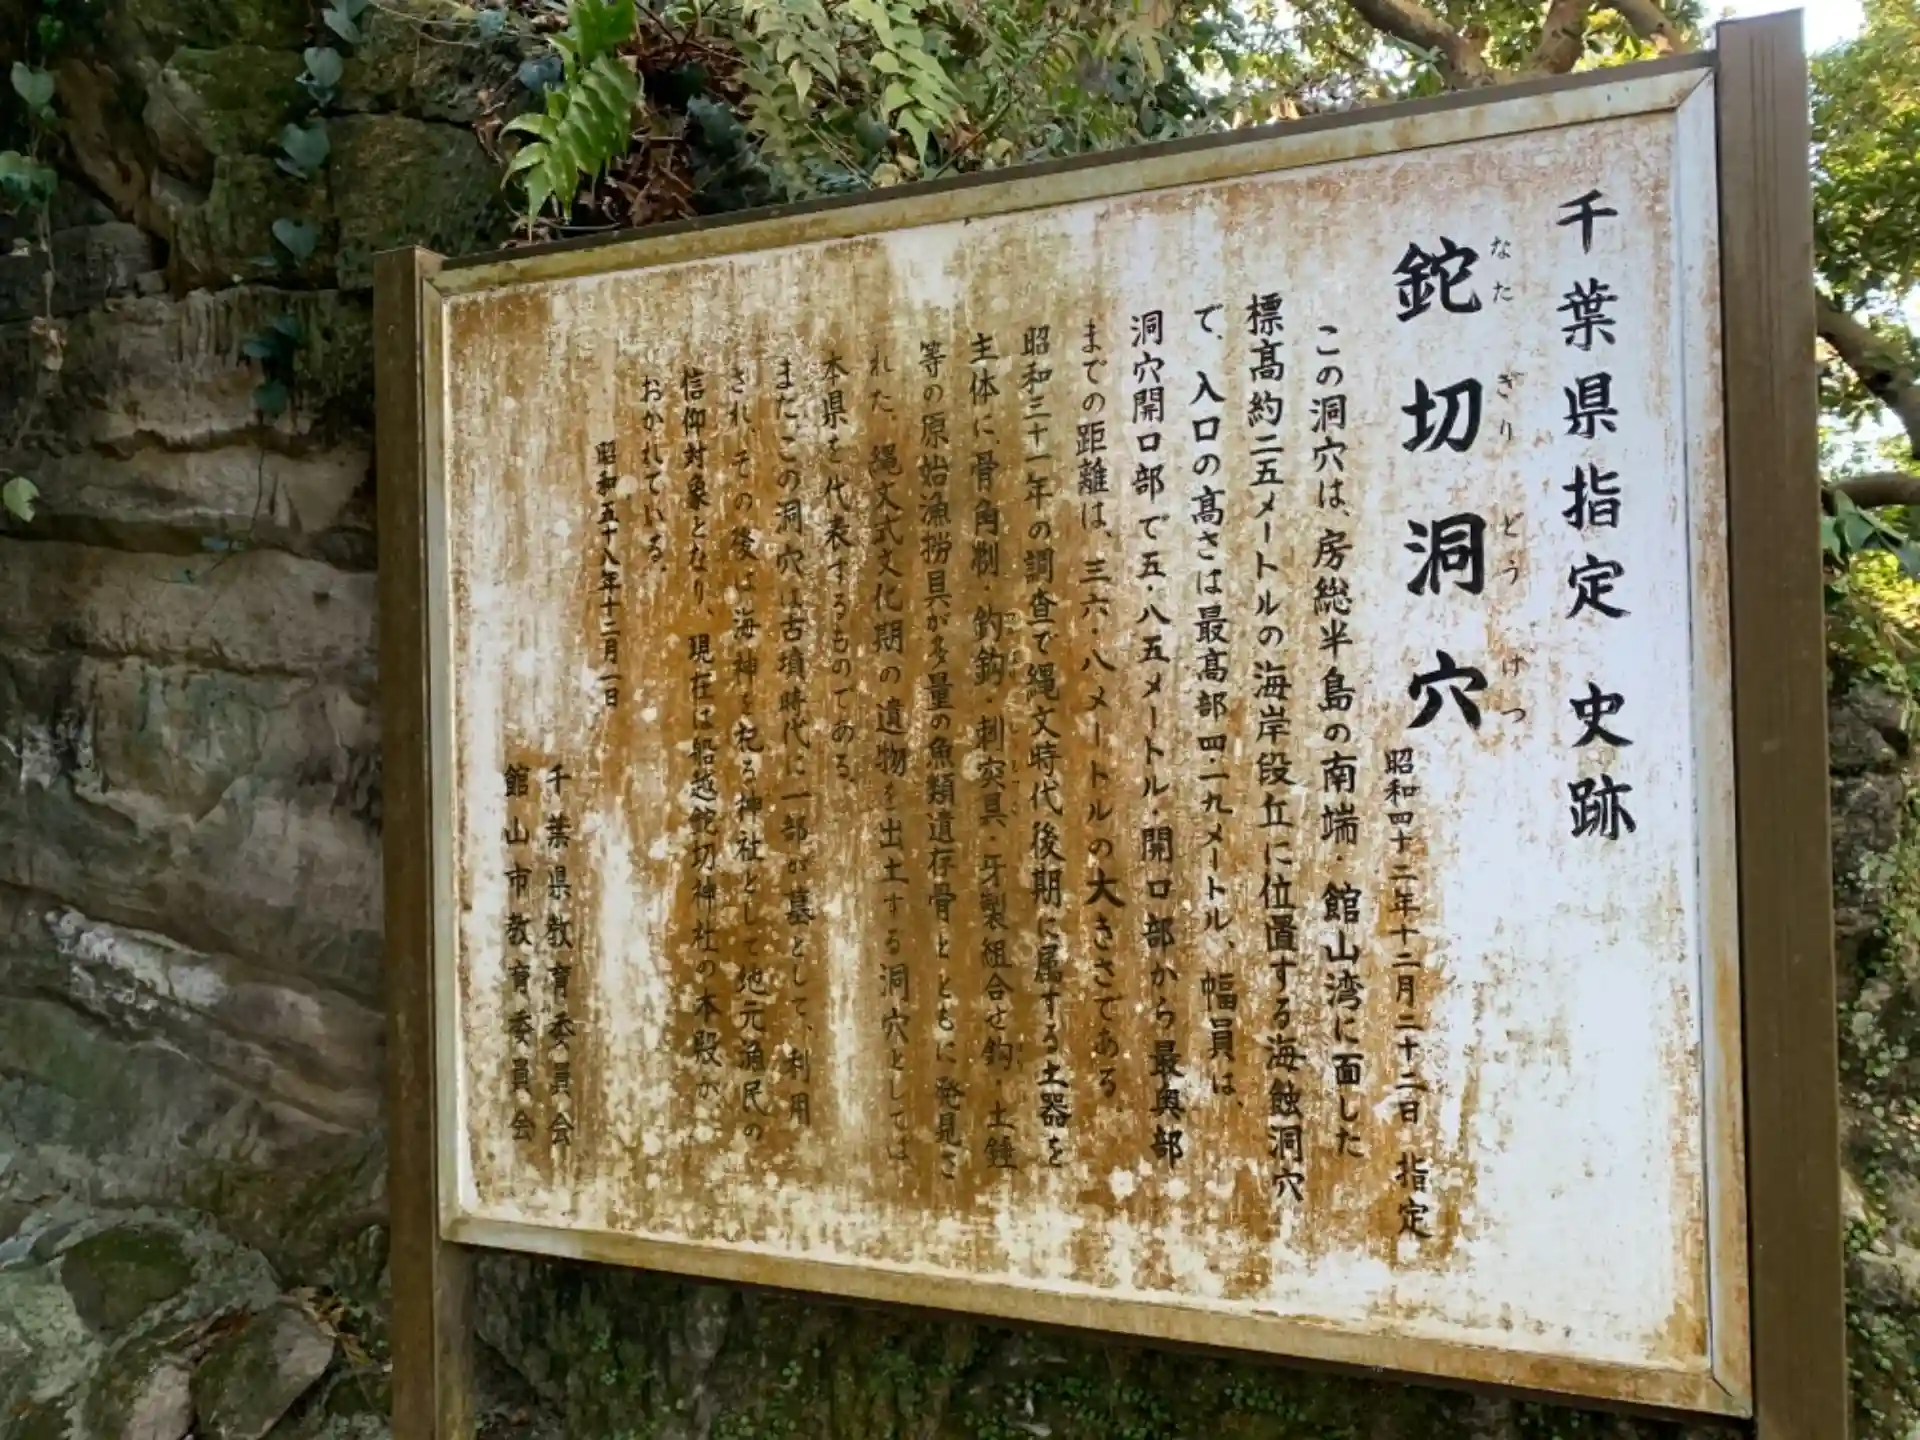 千葉県指定 史跡
鉈切洞穴
なた ぎり どう けつ
昭和四十二年十二月二十二日 指定
この洞穴は、房総半島の南端・館山湾に面した
標高約二五メートルの海岸段丘に位置する海蝕洞穴
で、入口の高さは最高部四・一九メートル、幅員は、
洞穴開口部で五・八五メートル・開口部から最奥部
までの距離は、三六・八メートルの大きさである。
昭和三十一年の調査で縄文時代後期に属する土器を
主体に、骨角製・釣鈎・刺突具・牙製組合せ鈎・土錘
等の原始漁撈具が多量の魚類遺存骨とともに発見さ
れた。縄文式文化期の遺物を出土する洞穴としては
本県を代表するものである。
また、この洞穴は古墳時代に一部が墓として、利用
され、その後は海神を祀る神社として地元漁民の
信仰対象となり、現在は船越鉈切神社の本殿が、
おかれている。
昭和五十八年十二月一日
千葉県教育委員会
館山市教育委員会